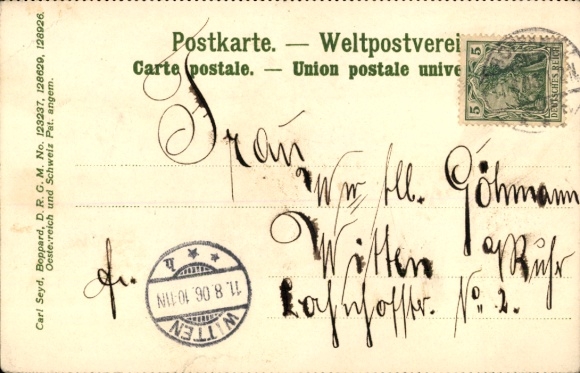 Postkarte. — Weltpostverei
Carte postale. — Union postale unive
5 DEUTSCHES REICH 5
Frau
Ww. Göhmann
Witten a/Ruhr
fr.
Bahnhofstr. No. 2.
WITTEN
11.8.06.10-11N
* * h
Carl Seyd, Boppard, D. R. G. M. No. 123237, 128629, 128926.
Oesterreich und Schweiz Pat. angem.